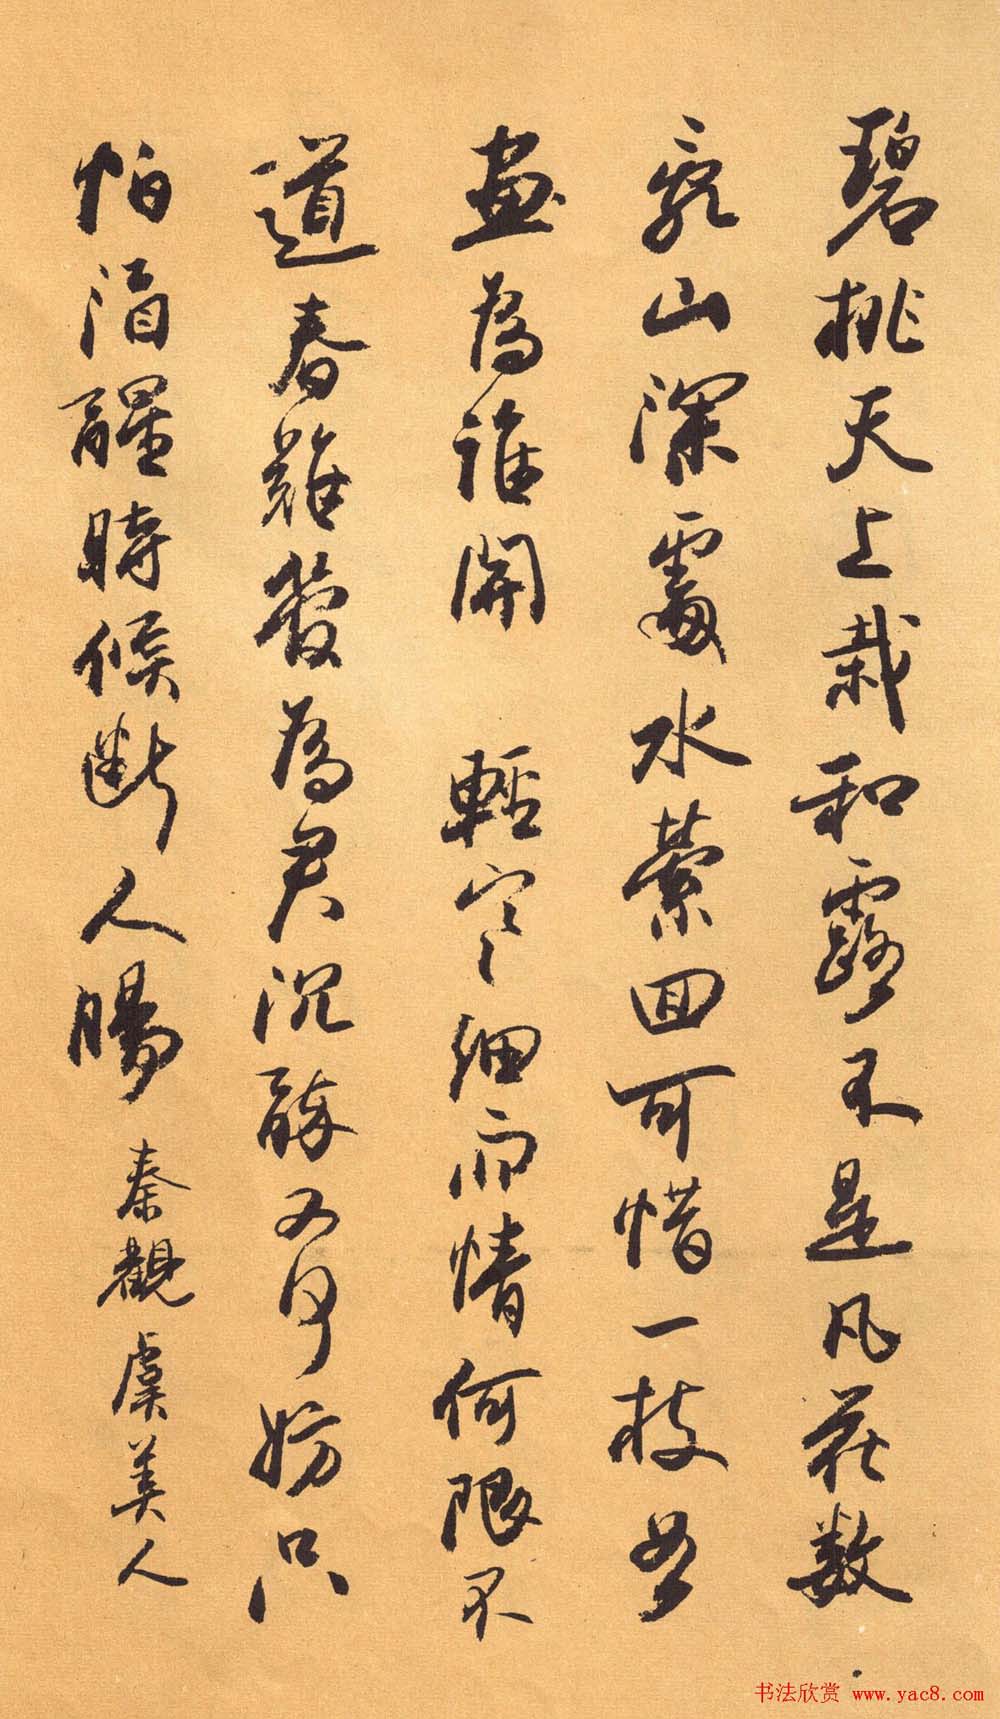 碧桃天上栽和露不是凡花數
亂山深處水縈回可惜一枝如
畫為誰開 輕寒細雨情何限不
道春難管為君沉醉又何妨只
怕酒醒時候斷人腸
秦觀虞美人
书法欣赏 www.yac8.com